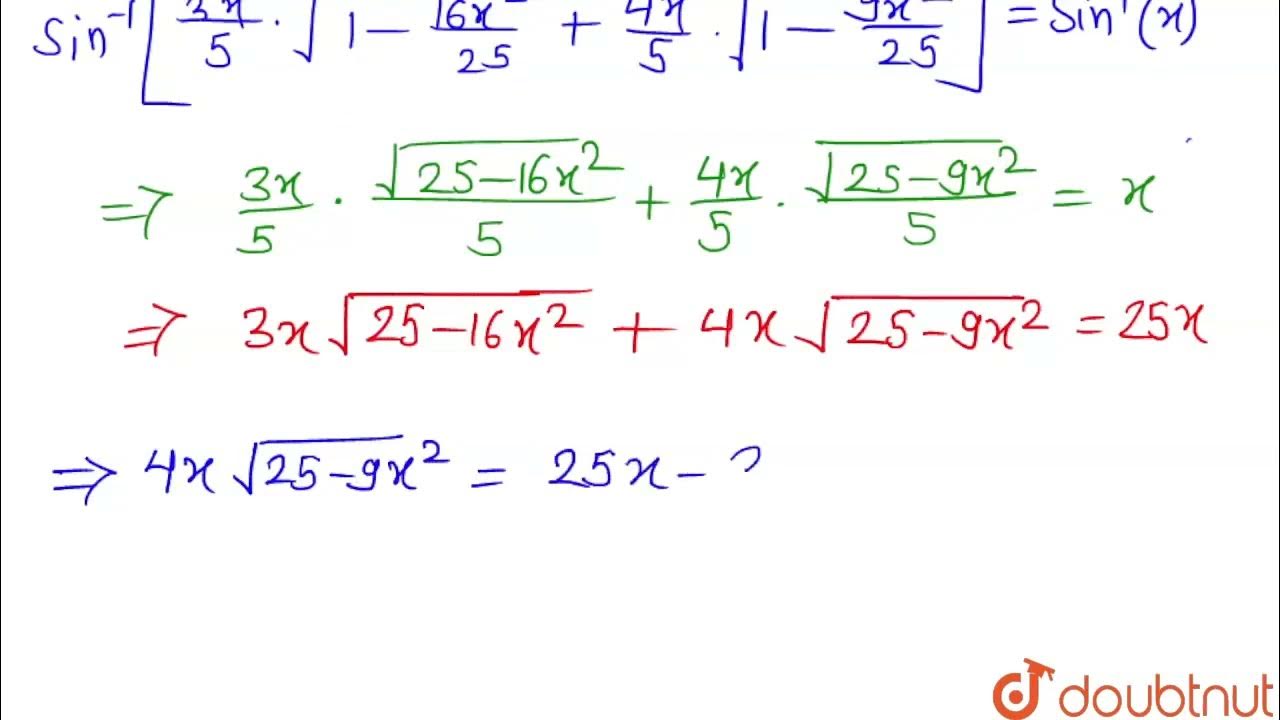 sin⁻¹[3x/5 · √1 − 16x²/25 + 4x/5 · √1 − 9x²/25] = sin⁻¹(x)
⇒ 3x/5 · √25−16x²/5 + 4x/5 · √25−9x²/5 = x
⇒ 3x√25−16x² + 4x√25−9x² = 25x
⇒ 4x√25−9x² = 25x −
doubtnut